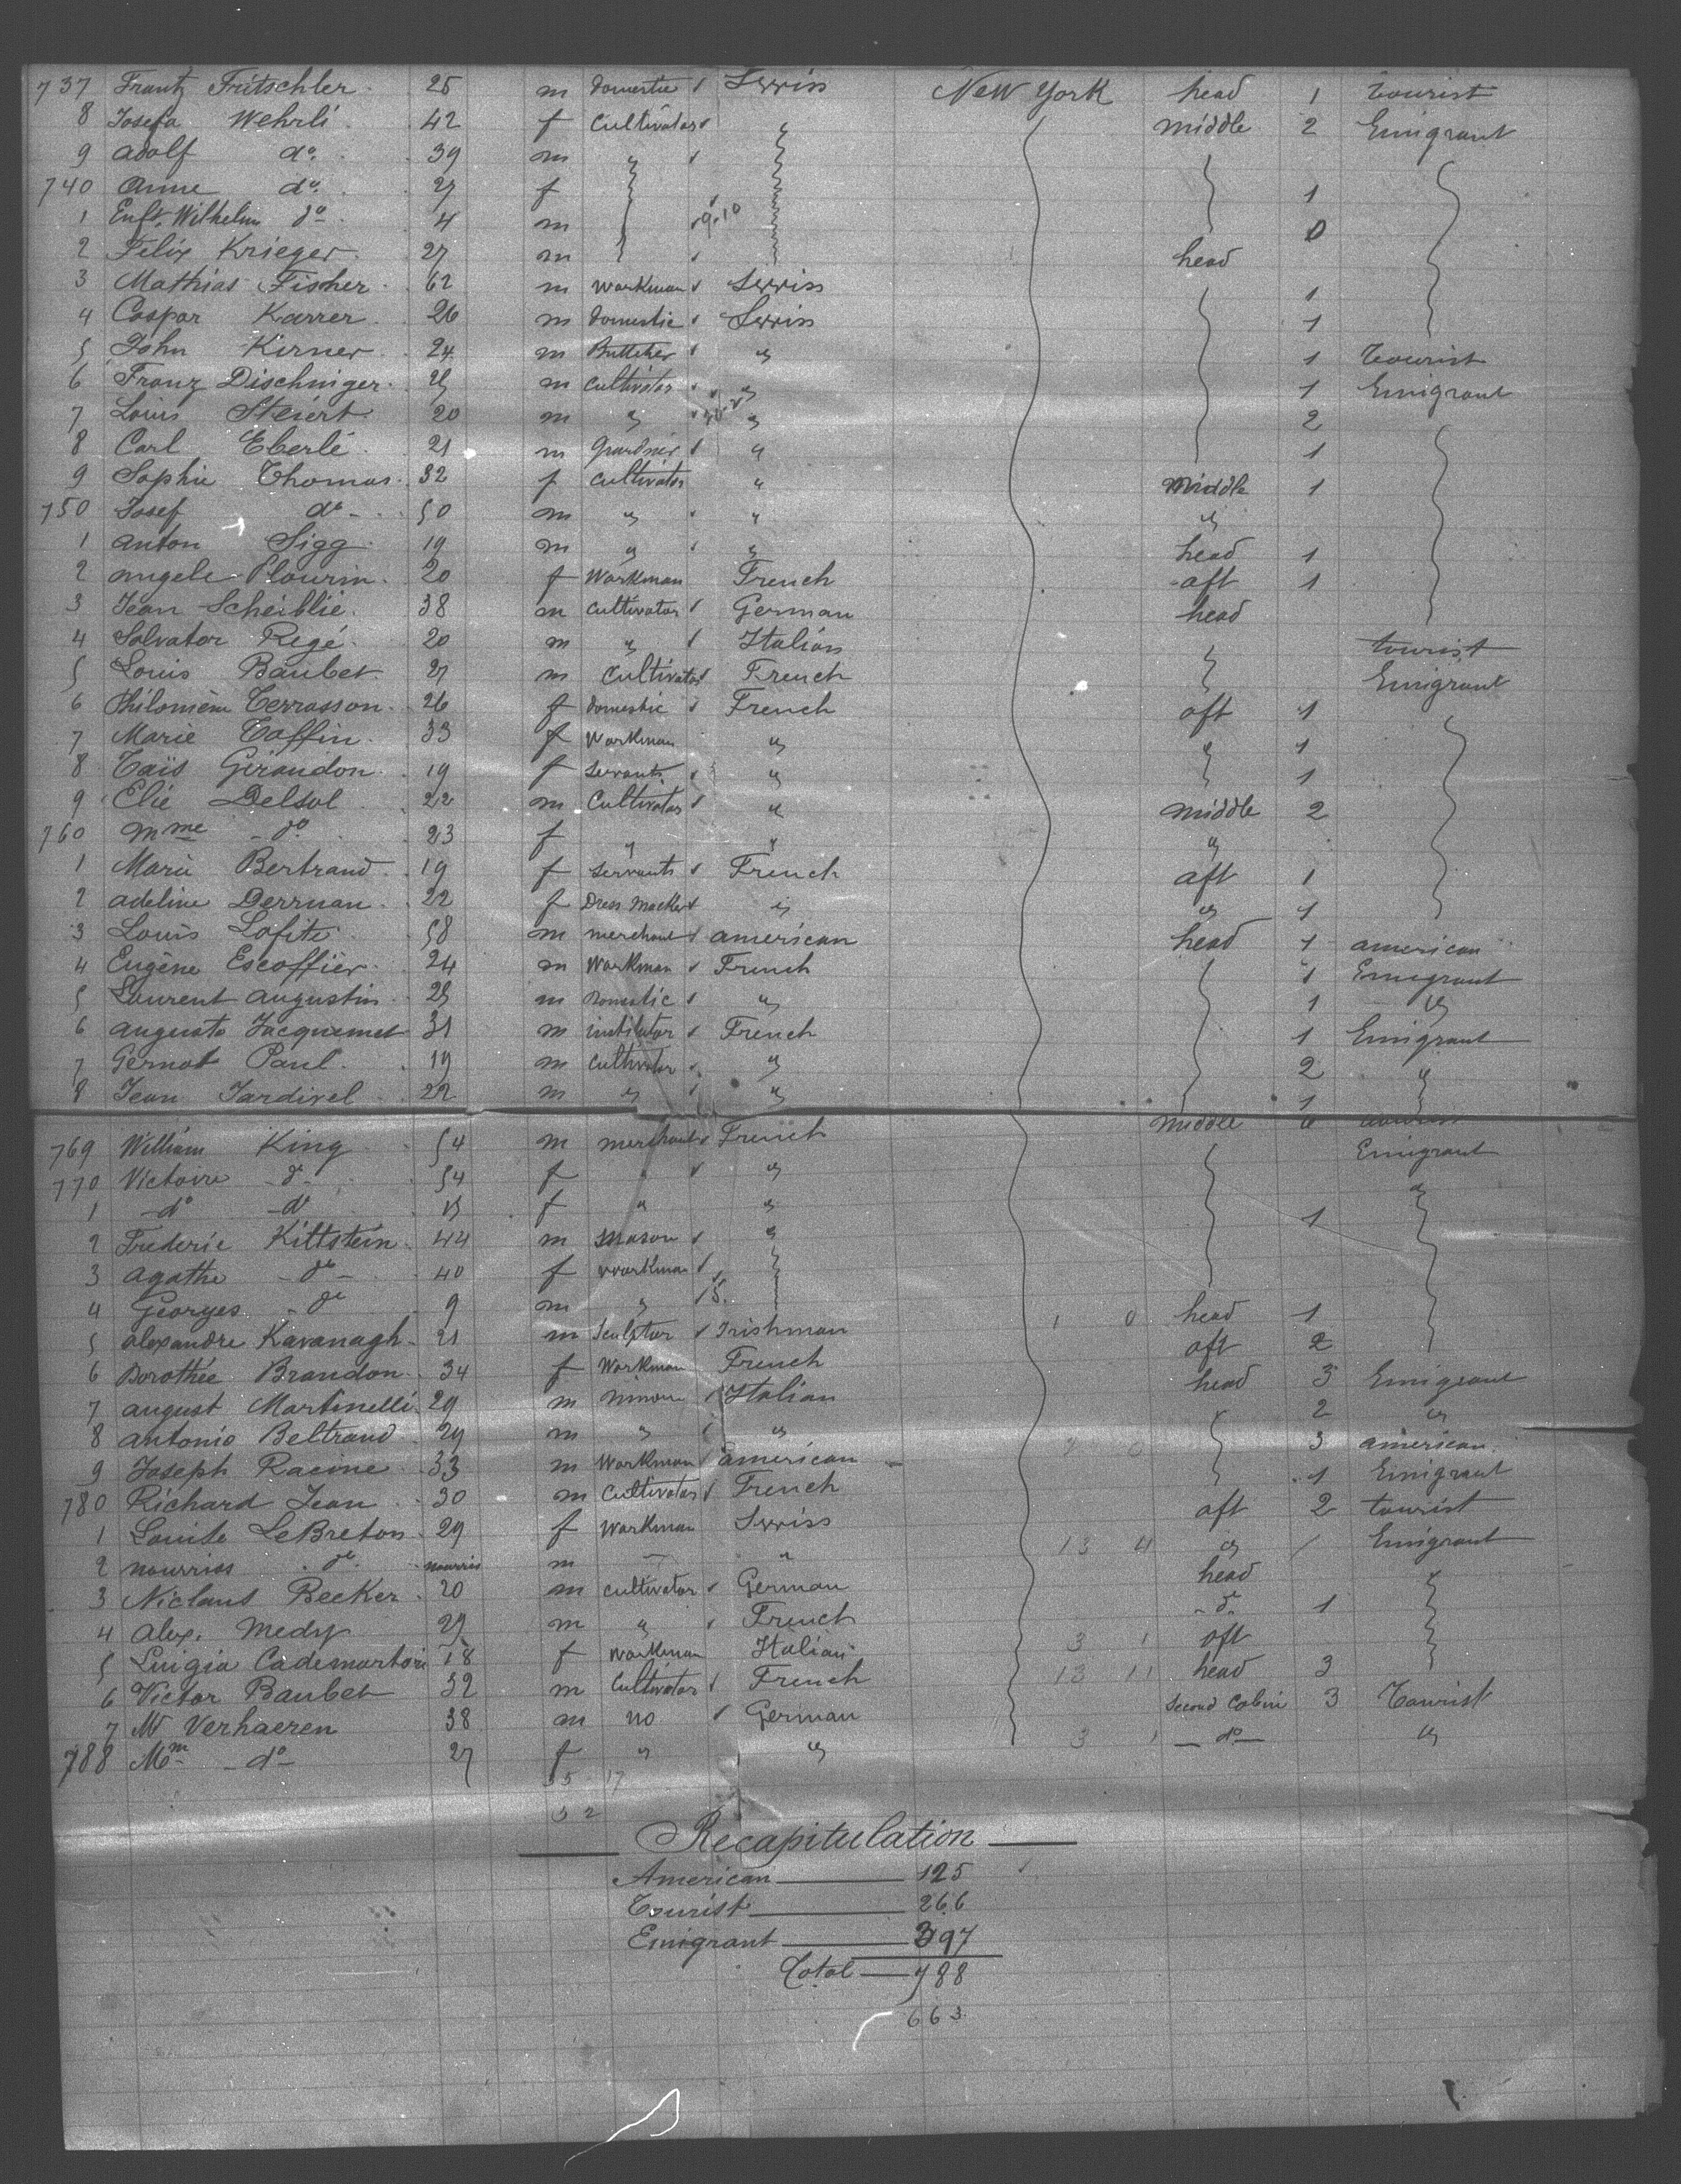 737 Frantz Fritschler 25 m domestic Swiss New York head 1 tourist
8 Josefa Wehrli 42 f Cultivator middle 2 Emigrant
9 Adolf do 39 m "
740 Anne do 27 f 1
1 Enft. Wilhelm do 4 m 9.10 0
2 Felix Krieger 27 m head
3 Mathias Fisher 62 m Workman Swiss 1
4 Caspar Karrer 26 m domestic Swiss 1
5 John Kirner 24 m Buttcher " 1 Tourist
6 Franz Dischniger 25 m Cultivator " 1 Emigrant
7 Louis Steiert 20 m " " 2
8 Carl Eberlé 21 m Gardner " 1
9 Sophie Thomas 32 f Cultivator " Middle 1
750 Josef do 50 m " " "
1 Anton Sigg 19 m " " head 1
2 Angele Plourin 20 f Workman French aft 1
3 Jean Scheiblie 38 m Cultivator German head
4 Salvator Regé 20 m " Italian tourist
5 Louis Baubet 27 m Cultivator French Emigrant
6 Philomène Terrasson 26 f domestic French aft 1
7 Marie Taffin 33 f Workman " " 1
8 Taïs Girandon 19 f Servants " 1
9 Elie Delsol 22 m Cultivator " middle 2
760 Mme do 23 f " " "
1 Marie Bertrand 19 f Servants French aft 1
2 Adeline Derrnan 22 f Dress Macker " " 1
3 Louis Lafite 58 m merchant American head 1 American
4 Eugène Escoffier 24 m Workman French 1 Emigrant
5 Laurent Augustin 25 m Domestic " 1 "
6 Auguste Jacquemet 31 m institutor French 1 Emigrant
7 Gernot Paul 19 m Cultivator " 2 "
8 Jean Jardivel 22 m " " 1
769 William King 54 m merchant French middle
770 Victoire do 54 f " " Emigrant
1 do do 15 f " " "
2 Frederic Kittstein 44 m Mason " 1
3 Agathe do 40 f Workman
4 Georges do 9 m " 15
5 Alexandre Kavanagh 21 m Sculptor Irishman 1 0 head 1
6 Dorothée Brandon 34 f Workman French aft 2
7 August Martinelli 29 m Italian head 3 Emigrant
8 Antonio Beltrand 29 m " " 2 "
9 Joseph Racine 33 m Workman American 3 American
780 Richard Jean 30 m Cultivator French 1 Emigrant
1 Louise LeBreton 29 f Workman Swiss aft 2 tourist
2 nourriss do nourris m — " 13 4 " Emigrant
3 Niclaus Becker 20 m Cultivator German head
4 Alex. Medy 29 m " French do 1
5 Luigia Cademartori 18 f Workman Italian 3 1 aft
6 Victor Baubet 32 m Cultivator French 13 11 head 3
7 Mr Verhaeren 38 m no German Second Cabin 3 Tourist
788 Mm do 27 f " " 3 1 do "
35 17
52
Recapitulation
American 125
Tourist 266
Emigrant 397
Total 788
663